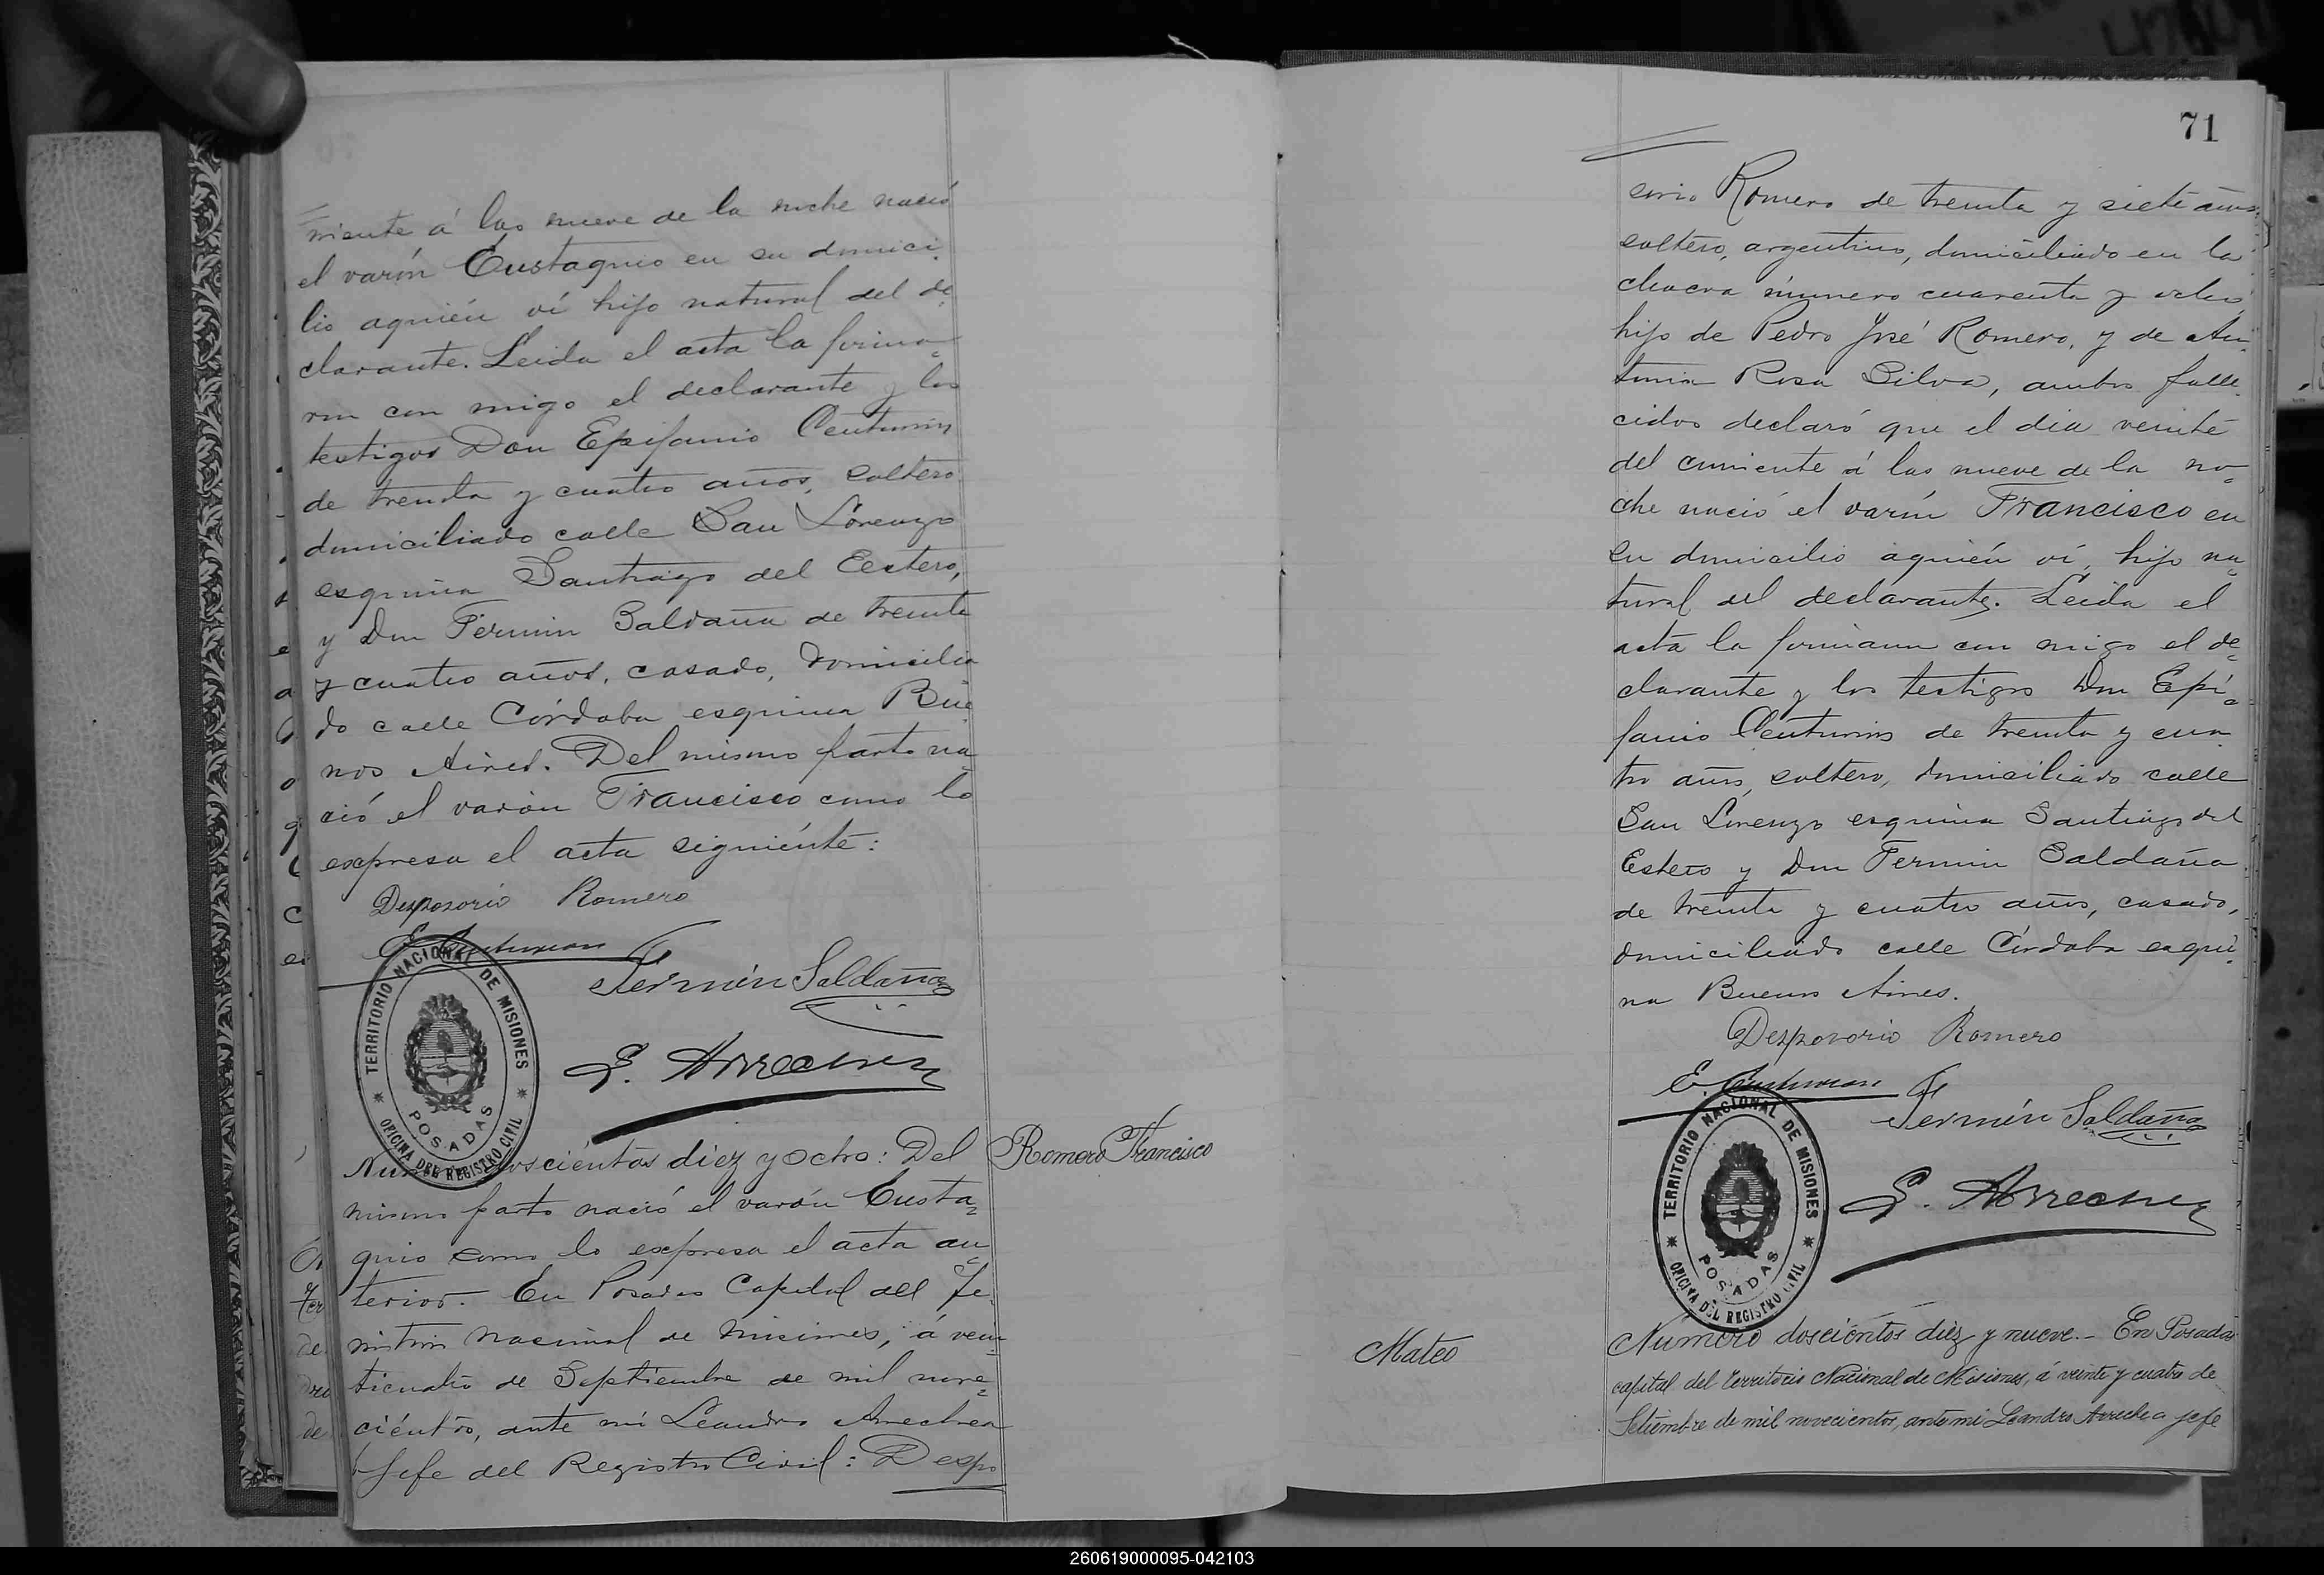 rriente á las nueve de la noche nació
el varón Eustaquio en su domici-
lio aquién ví hijo natural del de-
clarante. Leida el acta la firma-
ron con migo el declarante y los
testigos Don Epifanio Centurion
de treinta y cuatro años, soltero
domiciliado calle San Lorenzo
esquina Santiago del Eestero,
y Don Fermin Saldaña de treinta
y cuatro años, casado, domicilia
do calle Córdoba esquina Bue
nos Aires. Del mismo parto na-
ció el varón Francisco como lo
expresa el acta siguiénte:
Desposorio Romero
E. Centurion
Fermín Saldaña
L. Arrechea
TERRITORIO NACIONAL DE MISIONES
POSADAS
OFICINA DEL REGISTRO CIVIL
Romero Francisco
doscientos diez y ocho: Del
mismo parto nació el varón Eusta-
quio como lo expresa el acta an-
terior. En Posadas Capital del Te-
rritorio Nacional de Misiones, á vein-
ticuatro de Septiembre de mil nove-
ciéntos, ante mí Leandro Arrechea
Jefe del Registro Civil: Despo
71
sorio Romero de treinta y siete años
soltero, argentino, domiciliado en la
chacra número cuarenta y ocho,
hijo de Pedro José Romero, y de An-
tonia Rosa Silva, ambos falle-
cidos declaró que el dia veinte
del corriente á las nueve de la no-
che nació el varón Francisco en
su domicilio aquién ví, hijo na-
tural del declarante. Leida el
acta la firmaron con migo el de-
clarante y los testigos Don Epi-
fanio Centurion de treinta y cua-
tro años, soltero, domiciliado calle
San Lorenzo esquina Santiago del
Estero y Don Fermin Saldaña
de treinta y cuatro años, casado,
domiciliado calle Córdoba esqui-
na Buenos Aires.
Desposorio Romero
E. Centurion
Fermín Saldaña
L. Arrechea
TERRITORIO NACIONAL DE MISIONES
POSADAS
OFICINA DEL REGISTRO CIVIL
Mateo
Número dosciéntos diéz y nueve.- En Posadas
capital del Territorio Nacional de Misiones, á veinte y cuatro de
Setiembre de mil novecientos, ante mi Leandro Arrechea jefe
260619000095-042103